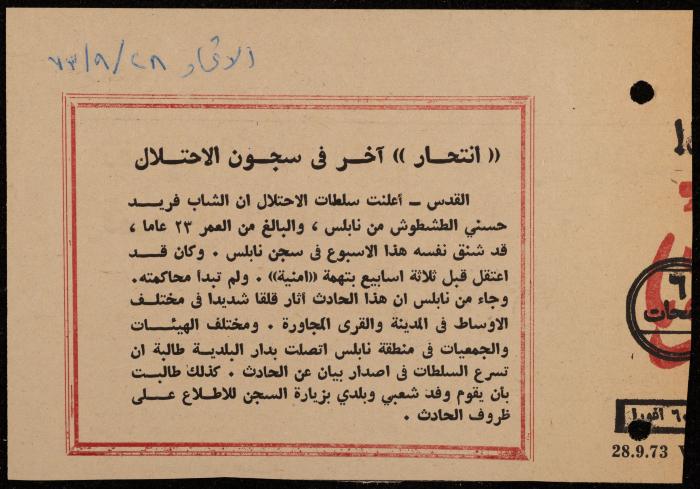 الاتحاد ٢٨/٩/٧٣
« انتحار » آخر فى سجون الاحتلال
القدس ـ أعلنت سلطات الاحتلال ان الشاب فريد
حسني الطشطوش من نابلس ، والبالغ من العمر ٢٣ عاما ،
قد شنق نفسه هذا الاسبوع فى سجن نابلس . وكان قد
اعتقل قبل ثلاثة اسابيع بتهمة «امنية» . ولم تبدأ محاكمته .
وجاء من نابلس ان هذا الحادث أثار قلقا شديدا فى مختلف
الاوساط فى المدينة والقرى المجاورة . ومختلف الهيئات
والجمعيات فى منطقة نابلس اتصلت بدار البلدية طالبة ان
تسرع السلطات فى اصدار بيان عن الحادث . كذلك طالبت
بأن يقوم وفد شعبي وبلدي بزيارة السجن للاطلاع على
ظروف الحادث .
٦
اغورا
28.9.73